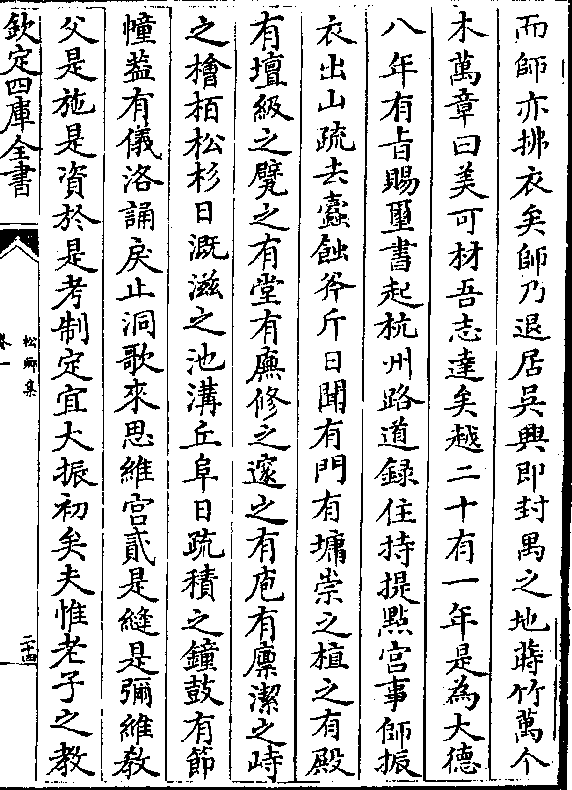 而師亦拂衣矣師乃退居吳興即封禺之地蒔竹萬个
木萬章曰美可材吾志達矣越二十有一年是為大德
八年有旨賜璽書起杭州路道録住持提㸃宫事師振
衣出山疏去蠧蝕斧斤日聞有門有墉崇之植之有殿
有壇級之甓之有堂有廡修之邃之有庖有廩潔之峙
之檜栢松杉日溉滋之池溝丘阜日疏積之鐘鼓有節
幢葢有儀洛誦戾止洞歌來思維宫貳是縫是彌維教
父是施是資於是考制定宜大振初矣夫惟老子之教
欽定四庫全書
松鄉集
卷一
二十四